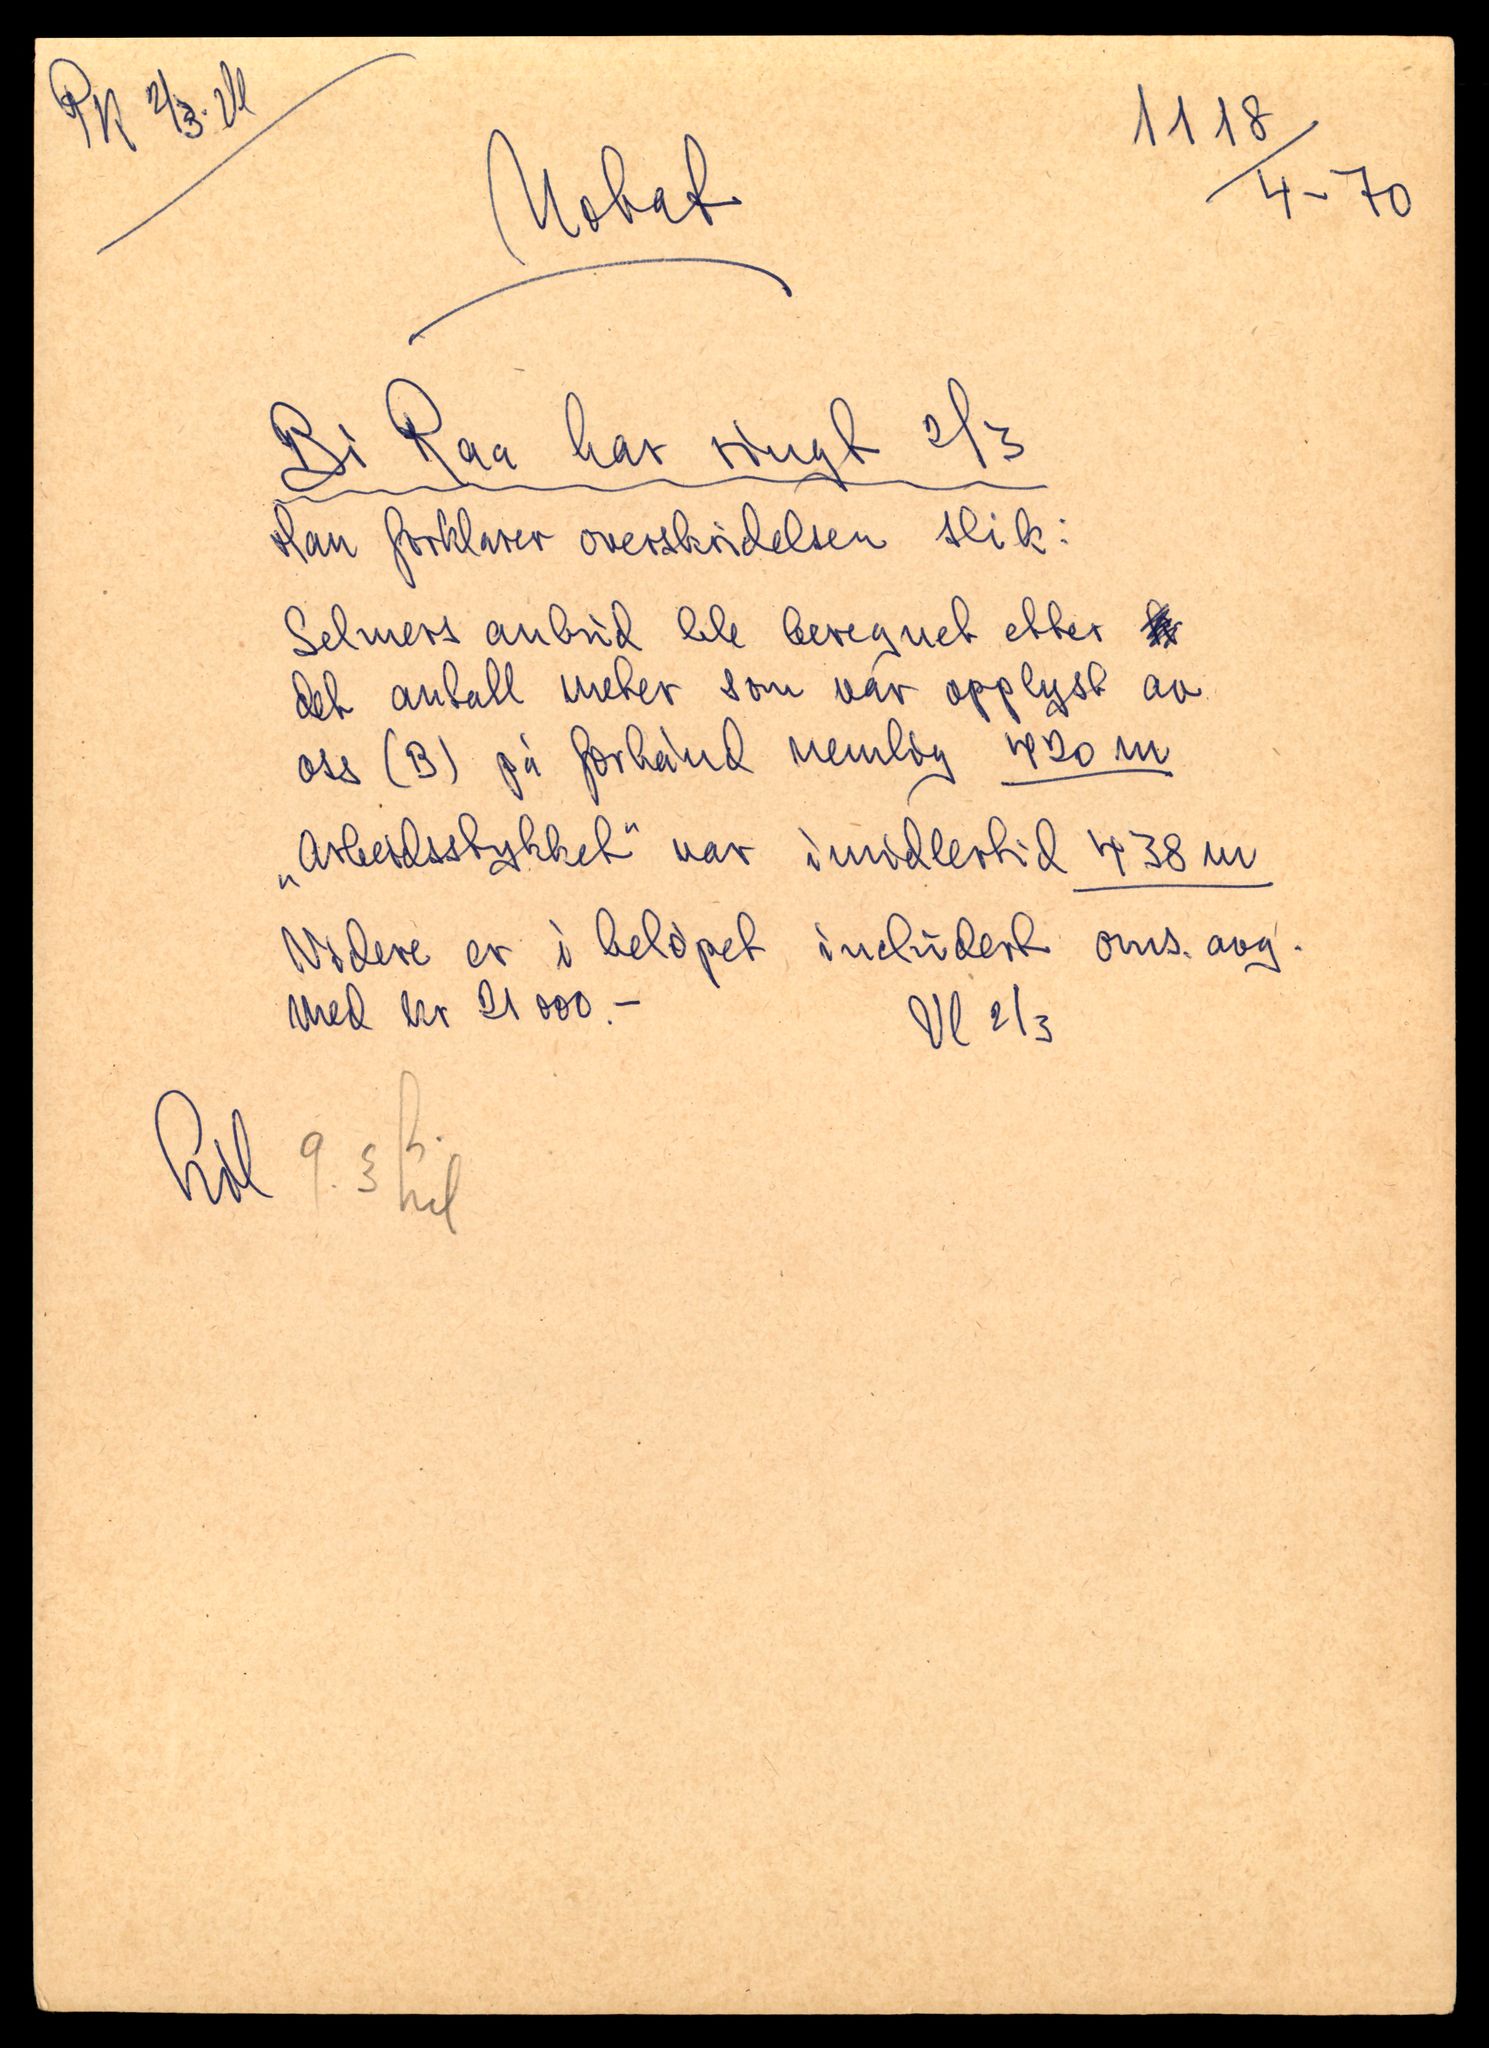 PK 2/3. Vl
1118/4-70
Notat
Bi Raa har ringt 2/3
Han forklarer overskridelsen slik:
Selmers anbud ble beregnet etter
det antall meter som var opplyst av
oss (B) på forhånd nemlig 420 m
„Arbeidsstykket" var imidlertid 438 m
Videre er i beløpet includert oms. avg.
med kr 21 000.-
Vl 2/3
9.3